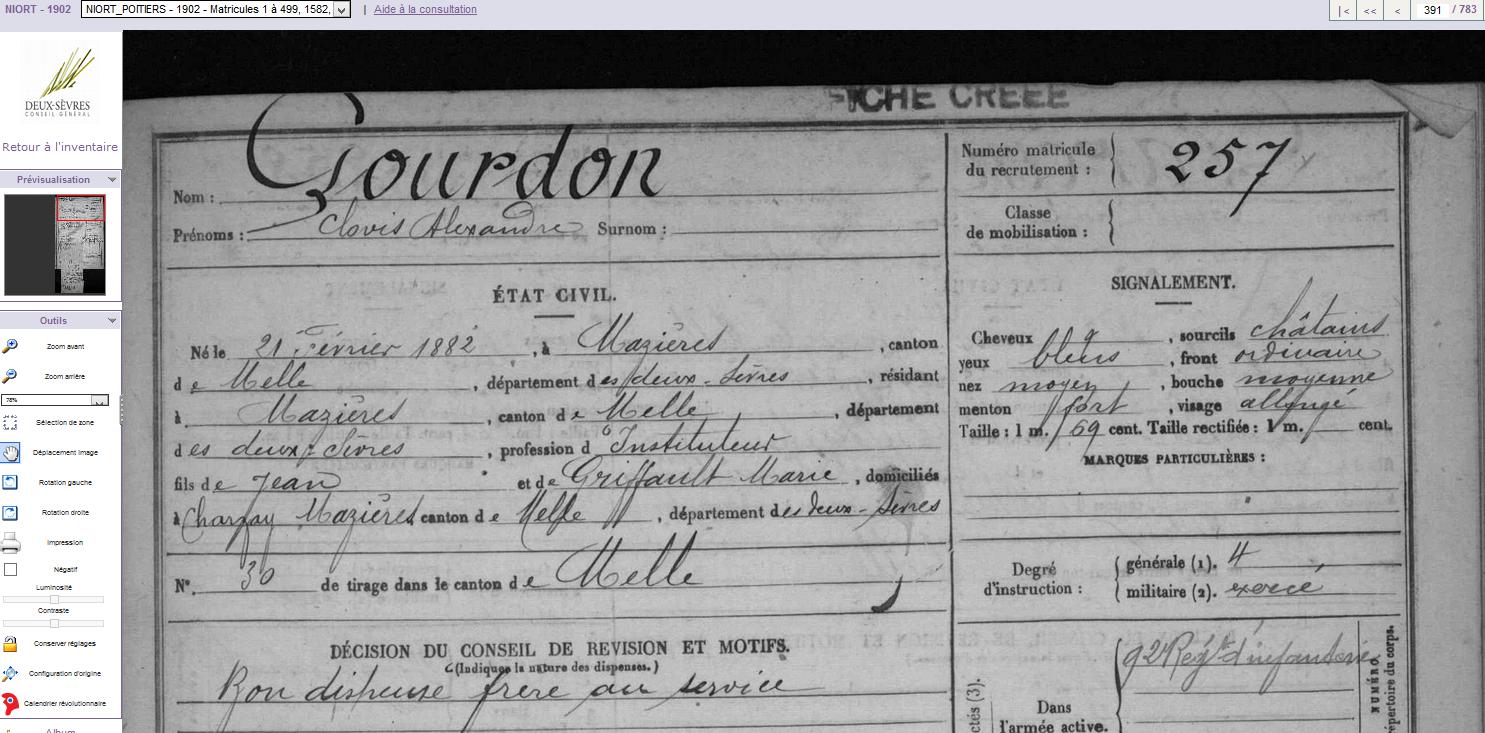 NIORT - 1902 NIORT_POITIERS - 1902 - Matricules 1 à 499, 1582, | Aide à la consultation |< << < 391 / 783
DEUX-SÈVRES
CONSEIL GÉNÉRAL
Retour à l'inventaire
Prévisualisation
Outils
Zoom avant
Zoom arrière
78%
Sélection de zone
Déplacement Image
Rotation gauche
Rotation droite
Impression
Négatif
Luminosité
Contraste
Conserver réglages
Configuration d'origine
Calendrier révolutionnaire
Album
FICHE CREEE
Nom : Gourdon
Prénoms : Clovis Alexandre Surnom :
Numéro matricule
du recrutement : 257
Classe
de mobilisation :
ÉTAT CIVIL.
Né le 21 Février 1882, à Mazières, canton
de Melle, département des deux-Sèvres, résidant
à Mazières, canton de Melle, département
des deux-Sèvres, profession d'Instituteur
fils de Jean et de Griffault Marie, domiciliés
à Mazières canton de Melle, département des deux-Sèvres
N° 30 de tirage dans le canton de Melle
DÉCISION DU CONSEIL DE REVISION ET MOTIFS.
(Indiquer la nature des dispenses.)
Bon dispensé frère au service
SIGNALEMENT.
Cheveux, sourcils châtains
yeux bleus, front ordinaire
nez moyen, bouche moyenne
menton fort, visage allongé
Taille : 1 m. 69 cent. Taille rectifiée : 1 m. cent.
MARQUES PARTICULIÈRES :
Degré
d'instruction :
générale (1). 4
militaire (2). exercé
ctés (3).
Dans
l'armée active.
92e Regt d'infanterie
NUMÉRO
répertoire du corps.